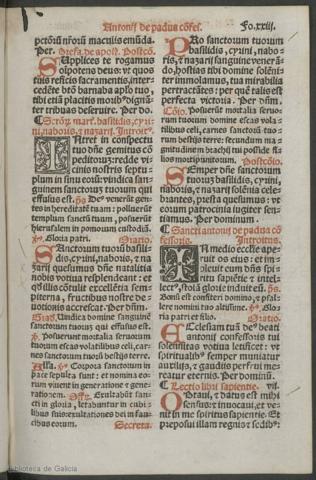 Antonij de padua cōfes.
Fo.xxiij.
pctorū nr̄orū maculis emūda.
Per. Prefa. de apost. Postcō.
Supplices te rogamus
oīpotens deus: vt quos
tuis reficis sacramentis, inter
cedēte btō barnaba apl'o tuo,
tibi etiā placitis moribꝰ dignā
ter tribuas deseruire. Per do.
basilidis, cy
ni, naboris, ⁊ nazarij. Introitꝰ.
Intret in conspectu
tuo dn̄e gemitus cō
peditoruꝫ: redde vi
cinis nostris septu
plum in sinu eorū: vindica san
guinem sanctoruꝫ tuorum qui
effusus est. ps̄ Deꝰ venerūt gen
tes in hereditatē tuam: polluerūt
templum sanctū tuum, posuerūt
hierusalem in pomorum custodiā.
Gloria patri. Oratio.
Sanctorum tuorū basili
dis, cyrini, naboris, ⁊ na
zarij quesumus dn̄e natalitia
nobis votiua resplendeant: et
q̄d illis cōtulit excellētia sempi
terna, fructibus nostre de⸗
uotionis accrescat. Per dn̄m.
Vindica domine sanguinē
sanctorum tuorum qui effusus est.
Posuerunt mortalia seruorum
tuorum escas volatilibus celi, car
nes sanctorum tuorū bestijs terre.
Alla. Corpora sanctorum in
pace sepulta sunt: et nomina eo⸗
rum viuent in generatione ⁊ gene⸗
rationem. Exultabūt san⸗
cti in gloria, letabuntur in cubi⸗
libus suis: exultationes dei in fau⸗
cibus eorum. Secreta.
Pro sanctorum tuorum
basilidis, cyrini, nabo⸗
ris, ⁊ nazarij sanguine venerā
do, hostias tibi domine solēni
ter immolamus, tua mirabilia
pertractātes: per quē talis est
perfecta victoria. Per dn̄m.
Cōio. Posuerūt mortalia seruo
rum tuorum domine escas vola⸗
tilibus celi, carnes sanctorū tuo⸗
rum bestijs terre: secundum ma⸗
gnitudinem brachij tui posside fi⸗
lios mortificatorum. Postcōio.
Semper dn̄e sanctorum
tuoruꝫ basilidis, cyrini,
naboris, ⁊ nazarij solēnia cele
brantes, presta quesumus: vt
eorum patrocinia iugiter senti
amus. Per dominum.
Sancti antonij de padua cō
fessoris. Introitus.
In medio ecclie ape⸗
ruit os eius: et im⸗
pleuit eum dn̄s spi
ritu sapiētie ⁊ intelle
ctꝰ, stolā glorie induit eū. ps̄.
Bonū est confiteri domino, ⁊ psal⸗
lere nomini tuo altissime. Glo
ria patri et filio. Oratio.
Ecclesiam tuā deꝰ beati
antonij confessoris tui
solennitas votiua letificet: vt
spiritualibꝰ semper muniatur
auxilijs, ⁊ gaudiis perfrui me⸗
reatur eternis. Per dominū.
Lectio libri sapientie. vij.
Optaui, ⁊ datus est mihi
sensus: ⁊ inuocaui, et ve⸗
nit in me spiritus sapientie. Et
preposui illam regnis ⁊ sedibꝰ:
Biblioteca de Galicia